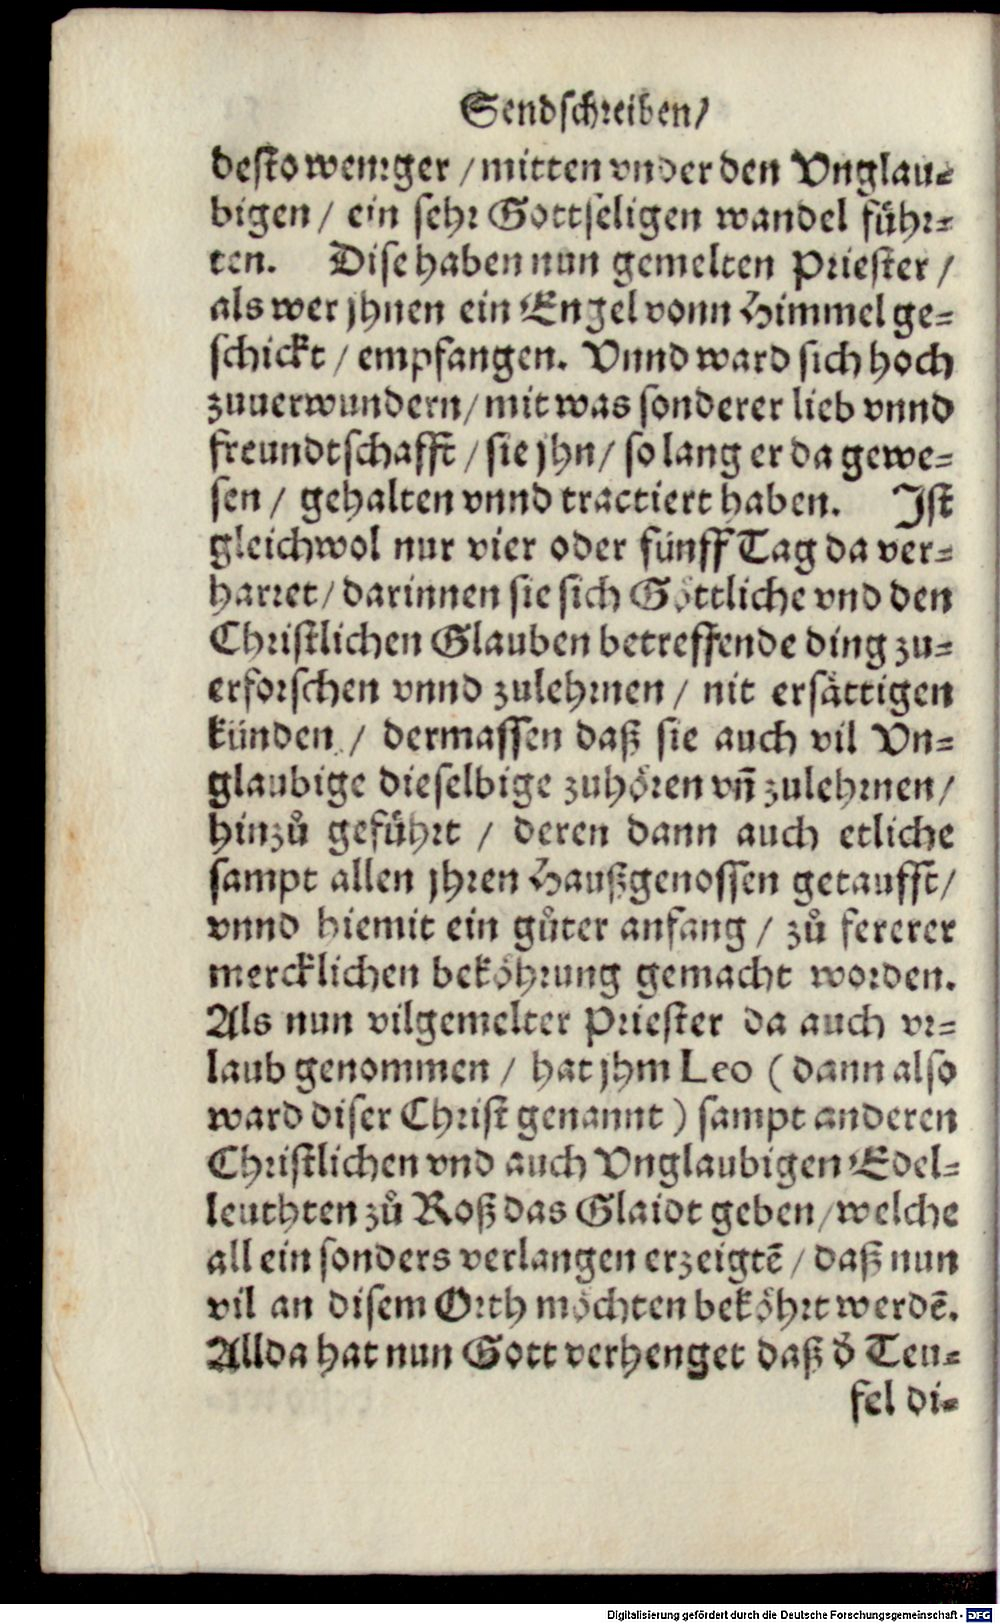 Sendschreiben/
desto weniger / mitten vnder den Vnglau⸗
bigen / ein sehr Gottseligen wandel führ⸗
ten. Dise haben nun gemelten Priester /
als wer jhnen ein Engel vonn Himmel ge⸗
schickt / empfangen. Vnnd ward sich hoch
zuuerwundern / mit was sonderer lieb vnnd
freundtschafft / sie jhn / so lang er da gewe⸗
sen / gehalten vnnd tractiert haben. Ist
gleichwol nur vier oder fünff Tag da ver⸗
harret / darinnen sie sich Göttliche vnd den
Christlichen Glauben betreffende ding zu⸗
erforschen vnnd zulehrnen / nit ersättigen
künden / dermassen daß sie auch vil Vn⸗
glaubige dieselbige zuhören vn̄ zulehrnen /
hinzů geführt / deren dann auch etliche
sampt allen jhren Haußgenossen getaufft /
vnnd hiemit ein gůter anfang / zů fererer
mercklichen beköhrung gemacht worden.
Als nun vilgemelter Priester da auch vr⸗
laub genommen / hat jhm Leo ( dann also
ward diser Christ genannt ) sampt anderen
Christlichen vnd auch Vnglaubigen Edel⸗
leuthten zů Roß das Glaidt geben / welche
all ein sonders verlangen erzeigtē / daß nun
vil an disem Orth möchten beköhrt werdē.
Allda hat nun Gott verhenget daß d̕ Teu⸗
fel di⸗
Digitalisierung gefördert durch die Deutsche Forschungsgemeinschaft - DFG